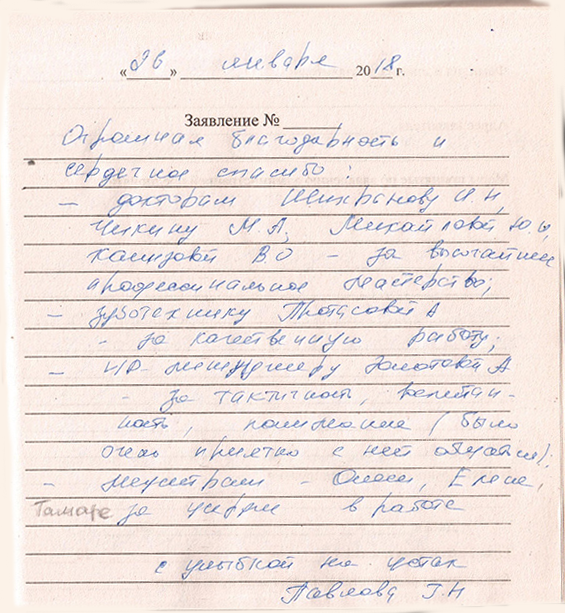 « 26 » января 2018 г.
Заявление №
Огромная благодарность и
сердечное спасибо:
– докторам И.Н,
Чикину М.А, Михайловой Ю.Ю,
В О – за высочайшее
профессиональное мастерство;
– зуботехнику Протасовой А
– за качественную работу;
– HR-менеджеру Золотовой А
– за тактичность,
ность, понимание (было
очень приятно с ней общаться);
– медсестрам – Олесе, Елене,
Тамаре за в работе
с улыбкой на устах
Павлова Г.Н